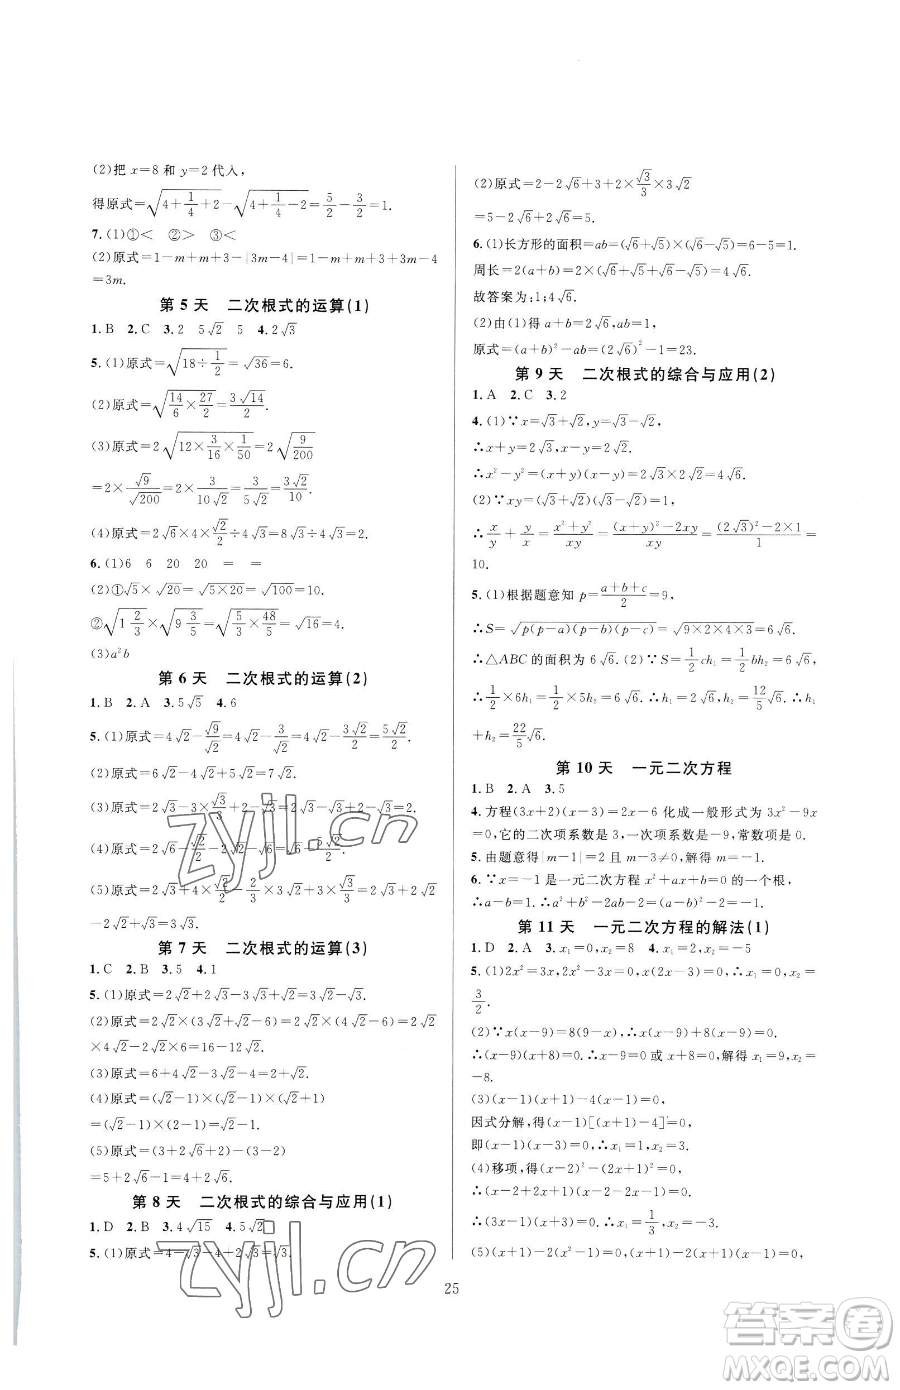 (2)把 x=8 和 y=2 代入,
得原式=√(4+1/4+2)-√(4+1/4-2)=5/2-3/2=1.
7. (1)①< ②> ③<
(2)原式=1-m+m+3-|3m-4|=1-m+m+3+3m-4
=3m.
第 5 天 二次根式的运算(1)
1. B 2. C 3. 2 5√2 5 4. 2√3
5. (1)原式=√(18÷1/2)=√36=6.
(2)原式=√(14/6×27/2)=3√14/2.
(3)原式=2√(12×3/16×1/50)=2√(9/200)
=2×√9/√200=2×3/(10√2)=3/(5√2)=3√2/10.
(4)原式=2√6×4×√2/2÷4√3=8√3÷4√3=2.
6. (1)6 6 20 20 = =
(2)①√5×√20=√(5×20)=√100=10.
②√(1 2/3)×√(9 3/5)=√(5/3×48/5)=√16=4.
(3)a²b
第 6 天 二次根式的运算(2)
1. B 2. A 3. 5√5 4. 6
5. (1)原式=4√2-√9/√2=4√2-3/√2=4√2-3√2/2=5√2/2.
(2)原式=6√2-4√2=2√2.
(3)原式=2√3-3×√3/3+√3=2√3-√3+√3=2√3.
(4)原式=4√2-√2/2-√2/2-5√2/2.
(5)原式=2√3+√2-(√3-√2)=2√3+√2-3×√3/3+
√2=2√3+√2-√3+√2=2√2+√3.
第 7 天 二次根式的运算(3)
1. C 2. B 3. 5 4. 1
5. (1)原式=2√2+2√3-3√3=2√2-√3.
(2)原式=2√2×(3√2+√2-6)=2√2×(4√2-6)=2√2
×4√2-2√2×6=16-12√2.
(3)原式=6+4√3-2√3=6+2√3.
(4)原式=(√2-1)×(√2-1)×(√2+1)
=(√2-1)×(2-1)=√2-1.
(5)原式=(3+2√6+2)-(3-2)
=5+2√6-1=4+2√6.
第 8 天 二次根式的综合与应用(1)
1. D 2. B 3. 4√15 4. 5√2
5. (1)原式=4-√3-4+2√3=√3.
(2)原式=2-2√6+3+2×√3/3×3√2
=5-2√6+2√6=5.
6. (1)长方形的面积=ab=(√6+√5)×(√6-√5)=6-5=1.
周长=2(a+b)=2×(√6+√5+√6-√5)=4√6.
故答案为:1;4√6.
(2)由(1)得 a+b=2√6,ab=1,
原式=(a+b)²-ab=(2√6)²-1=23.
第 9 天 二次根式的综合与应用(2)
1. A 2. C 3. 2
4. (1)∵x=√3+√2,y=√3-√2,
∴x+y=2√3,x-y=2√2.
∴x²-y²=(x+y)(x-y)=2√3×2√2=4√6.
(2)∵xy=(√3+√2)(√3-√2)=1,
∴x/y+y/x=(x²+y²)/xy=((x+y)²-2xy)/xy=((2√3)²-2×1)/1=
10.
5. (1)根据题意知 p=(a+b+c)/2=9,
∴S=√(p(p-a)(p-b)(p-c))=√(9×2×4×3)=6√6.
∴△ABC 的面积为 6√6. (2)∵S=1/2ch₁=1/2bh₂=6√6,
∴1/2×6h₁=1/2×5h₂=6√6. ∴h₁=2√6,h₂=12/5√6. ∴h₁
+h₂=22/5√6.
第 10 天 一元二次方程
1. B 2. A 3. 5
4. 方程(3x+2)(x-3)=2x-6 化成一般形式为 3x²-9x
=0,它的二次项系数是 3,一次项系数是-9,常数项是 0.
5. 由题意得|m-1|=2 且 m-3≠0,解得 m=-1.
6. ∵x=-1 是一元二次方程 x²+ax+b=0 的一个根,
∴a-b=1. ∴a²+b²-2ab=(a-b)²=1.
第 11 天 一元二次方程的解法(1)
1. D 2. A 3. x₁=0,x₂=8 4. x₁=x₂=-5
5. (1)2x²=3x,2x²-3x=0,x(2x-3)=0,∴x₁=0,x₂=
3/2.
(2)∵x(x-9)=8(9-x),∴x(x-9)+8(x-9)=0.
∴(x-9)(x+8)=0. ∴x-9=0 或 x+8=0,解得 x₁=9,x₂=
-8.
(3)(x-1)(x+1)-4(x-1)=0.
因式分解,得(x-1)[(x+1)-4]=0,
即(x-1)(x-3)=0,∴x₁=1,x₂=3.
(4)移项,得3x(x-1)-(x-1)=0.
∴(3x-1)(x-1)=0. ∴x₁=1/3,x₂=1.
(5)(x+1)-2(x²-1)=0,(x+1)-2(x+1)(x-1)=0,
25
zyjl.cn
zyjl.cn
答案圈
MXQE.COM